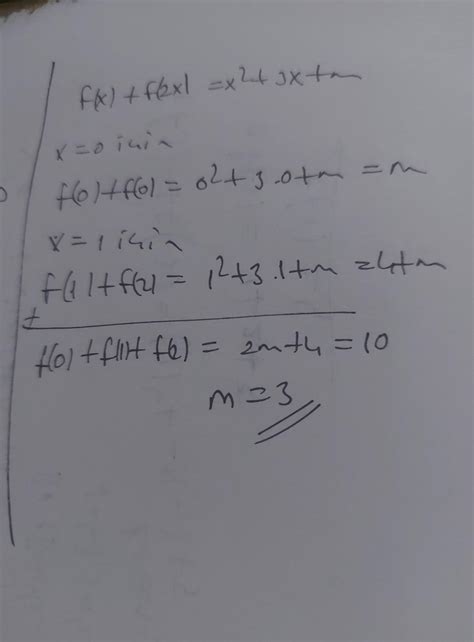 f(x) + f(2x) = x²+3x+m
x = 0 için
f(0)+f(0) = 0²+3.0+m = m
x = 1 için
f(1)+f(2) = 1²+3.1+m =4+m
+
f(0)+f(1)+f(2) = 2m+4 = 10
m = 3